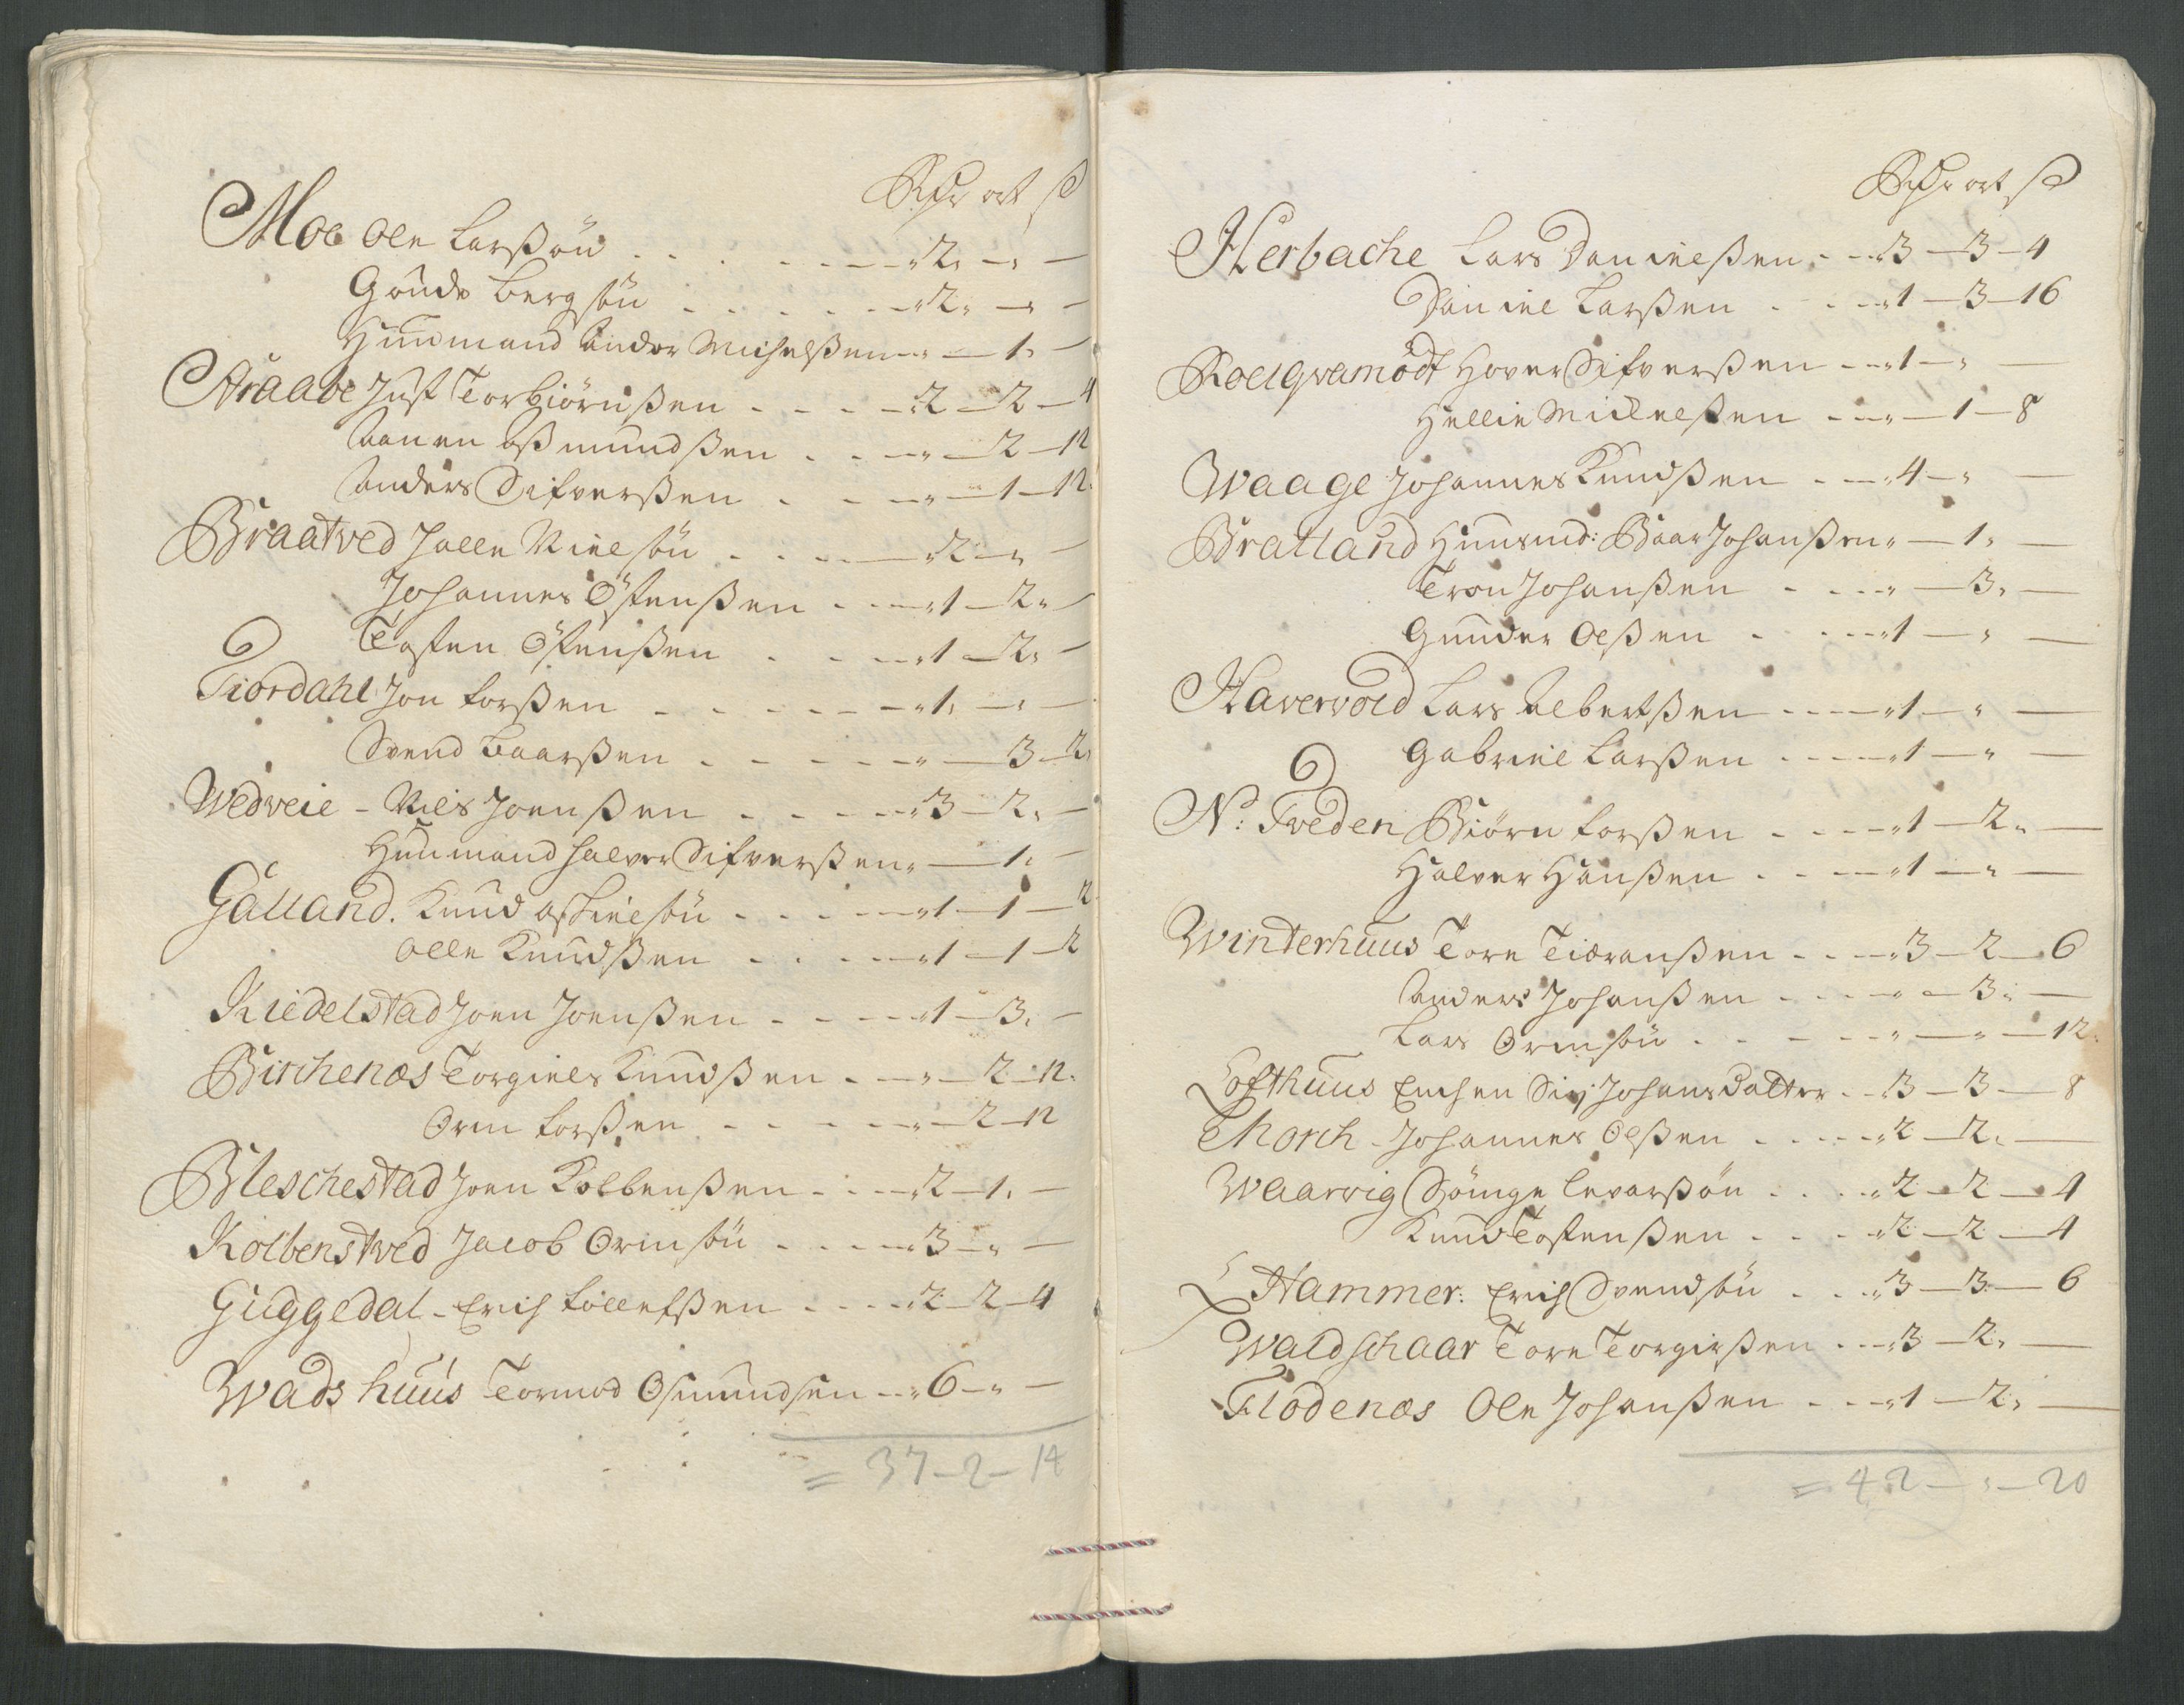 Rdr ort ß
Moe Ole Larßøn - - - 2 " -
Goude Bergsøn - - - 2 " -
Huusmand Ander Michelßen - " - 1 -
Araabe Just Torbiørnßen - - - 2 - 2 - 4
Aanen Aßmundßen - - - " - 2 - 12
Anders Sifverßen - - - " - 1 - 12
Braatved Halle Nielsøn - - - 2 - " -
Johannes Østenßen - - - 1 - 2 -
Tosten Østenßen - - - 1 - 2 -
Fiordahl Jon Larßen - - - 1 - " -
Svend Baarßen - - - " - 3 - 2
Wedveie - Nils Joenßen - - - 3 - 2 -
Huusmand Halver Sifverßen " - 1 -
Gålland. Knud Askielsøn - - - 1 - 1 - 12
Olle Knudßen - - - 1 - 1 - 2
Kiedelstad Joen Joenßen - - - 1 - 3 -
Birchenæs Torgiels Knudßen - - - " - 2 - 12
Orm Larßen - - - " - 2 - 12
Bleschestad Joen Kolbenßen - - - 2 - 1 -
Kolbenstved Jacob Ormsøn - - - 3 - " -
Guggedal - Erich Tollefßen - - - 2 - 2 - 4
Wads huus Tormod Osmundsen - - 6 - " -
= 37 - 2 - 14
Rdr ort ß
Herbache Lars Danielßen - - 3 - 3 - 4
Daniel Larßen - - - 1 - 3 - 16
Roelqvamødt Hover Sifverßen - - 1 - " -
Hellie Nielßen - - - " - 1 - 8
Waage Johannes Knudßen - - 4 - " -
Bratland Huusmd: Baar Johanßen " - 1 -
Tron Johanßen - - - " - 3 -
Gunder Olßen - - - 1 - " -
Havervold Lars Albertßen - - - 1 - " -
Gabriel Larßen - - - 1 - " -
N: Tveden Biørn Larßen - - - 1 - 2 -
Halver Hanßen - - - 1 - " -
Winterhuus Tore Tiøranßen - - - 3 - 2 - 6
Anders Johanßen - - - " - 3 -
Lars Ormsøn - - - " - " - 12
Lofthuus Enchen Sivj Johans Datter - - 3 - 3 - 8
Thorch - Johannes Olßen - - - 2 - 2 -
Waarvig Levarßøn - - - 2 - 2 - 4
Knud Tostenßen - - - 2 - 2 - 4
Hammer: Erich Svendsøn - - - 3 - 3 - 6
Waldschaar Tore Torgierßen - - - 3 - 2 -
Flodenæs Ole Johanßen - - - 1 - 2 -
= 42 - " - 20